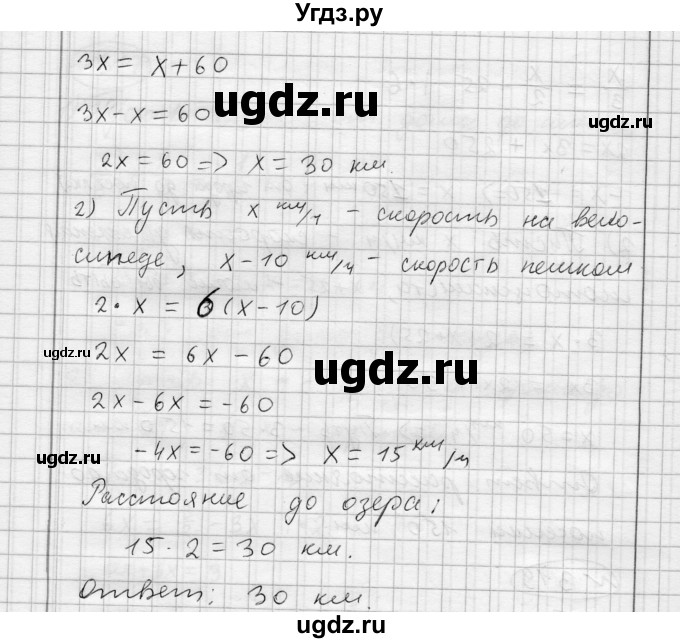 Угдз.ру
3x = x + 60
3x - x = 60
ugdz.ru
ugdz.ru
2x = 60 => x = 30 км.
2) Пусть x км/ч - скорость на вело-
сипеде, x - 10 км/ч - скорость пешком
2 · x = 6(x - 10)
ugdz.ru
2x = 6x - 60
ugdz.ru
2x - 6x = -60
ugdz.ru
-4x = -60 => x = 15 км/ч
Расстояние до озера:
15 · 2 = 30 км.
Ответ: 30 км.
ugdz.ru